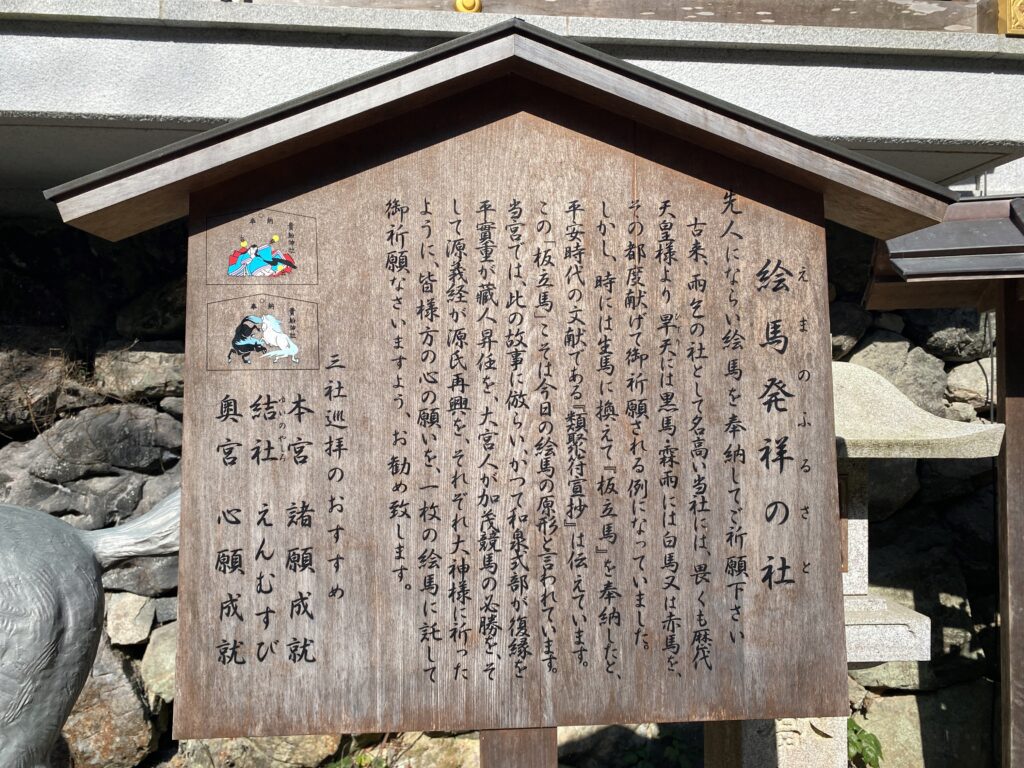 えまのふるさと
絵馬発祥の社
先人にならい絵馬を奉納してご祈願下さい
古来、雨乞の社として名高い当社には、畏くも歴代
天皇様より旱天には黒馬・霖雨には白馬又は赤馬を、
その都度献げて御祈願される例になっていました。
しかし、時には生馬に換えて『板立馬』を奉納したと、
平安時代の文献である『類聚符宣抄』は伝えています。
この「板立馬」こそは今日の絵馬の原形と言われています。
当宮では、此の故事に倣らい、かつて和泉式部が復縁を
平實重が蔵人昇任を、大宮人が加茂競馬の必勝を、そ
して源義経が源氏再興を、それぞれ大神様に祈った
ように、皆様方の心の願いを、一枚の絵馬に託して
御祈願なさいますよう、お勧め致します。
三社巡拝のおすすめ
本宮 諸願成就
ゆいのやしろ
結社 えんむすび
奥宮 心願成就
奉納
貴船神社
奉納
貴船神社